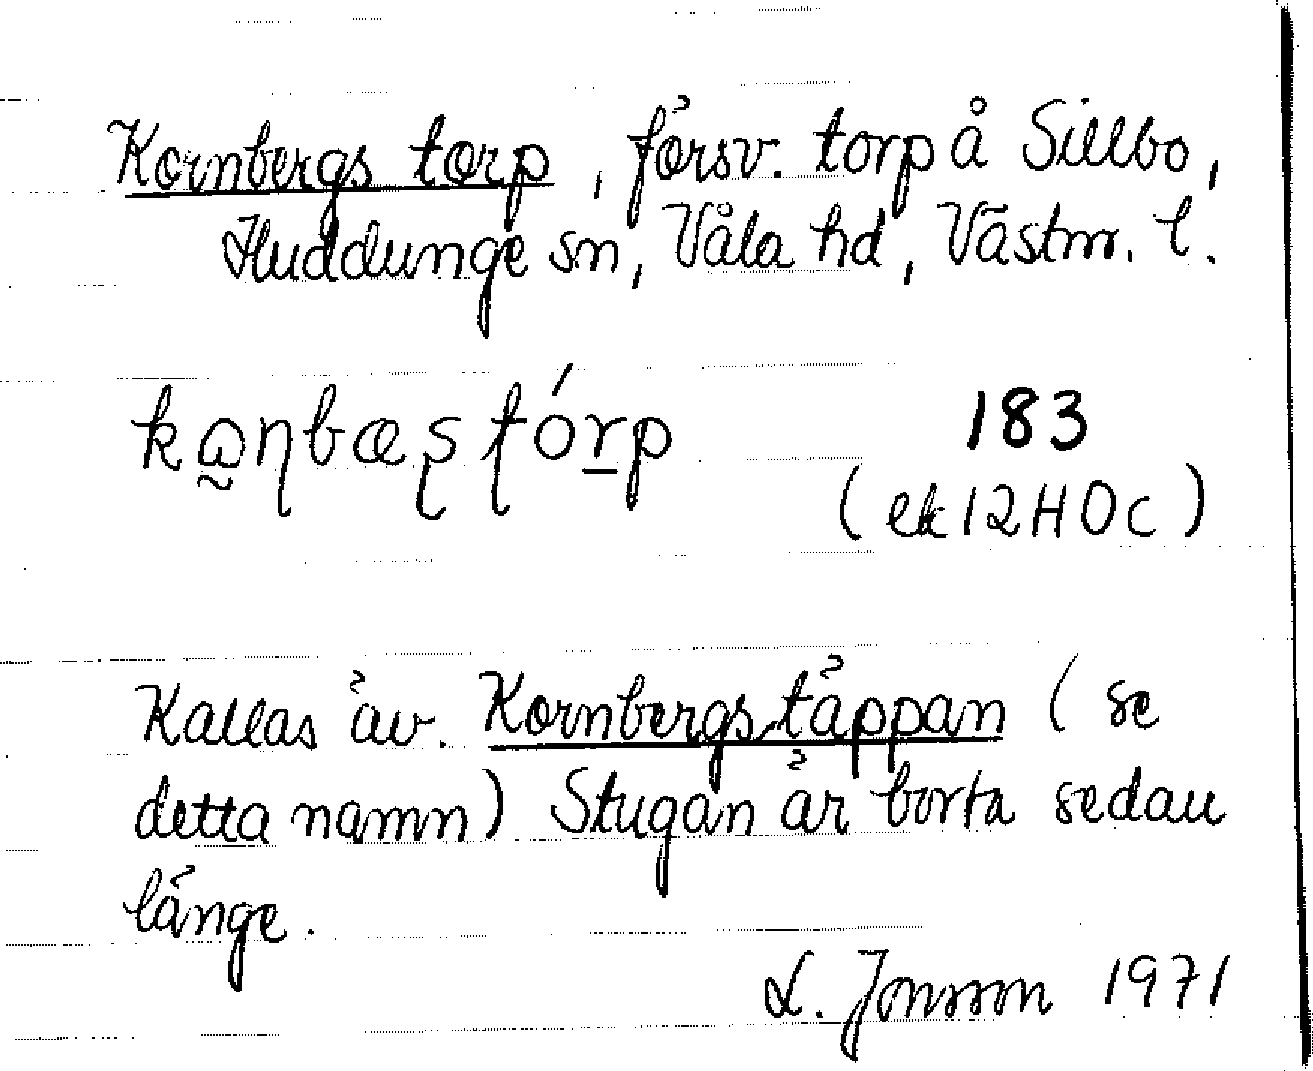 Kornbergs torp, försv. torp å Sillbo,
Huddunge sn, Våla hd, Västm. l.
183
(ek 12 H O c)
Kallas äv. Kornbergs täppan (se
detta namn) Stugan är borta sedan
länge.
L. Jonsson 1971